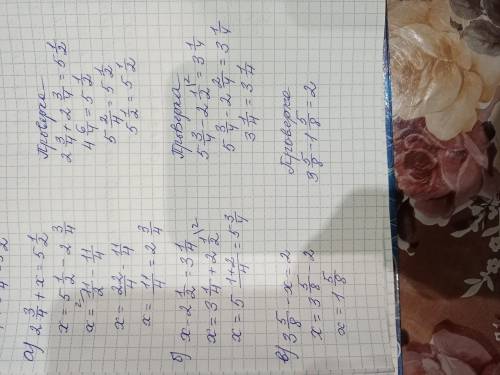 а) 2 3/4 + x = 5 1/2
x = 5 1/2 - 2 3/4
x = 11/2 - 11/4
x = 22/4 - 11/4
x = 11/4 = 2 3/4
Проверка
2 3/4 + 2 3/4 = 5 1/2
4 6/4 = 5 1/2
5 2/4 = 5 1/2
5 1/2 = 5 1/2
б) x - 2 1/2 = 3 1/4
x = 3 1/4 + 2 1/2 \2
x = 5 1+2/4 = 5 3/4
Проверка
5 3/4 - 2 1/2 \2 = 3 1/4
5 3/4 - 2 2/4 = 3 1/4
3 1/4 = 3 1/4
в) 3 5/8 - x = 2
x = 3 5/8 - 2
x = 1 5/8
Проверка
3 5/8 - 1 5/8 = 2